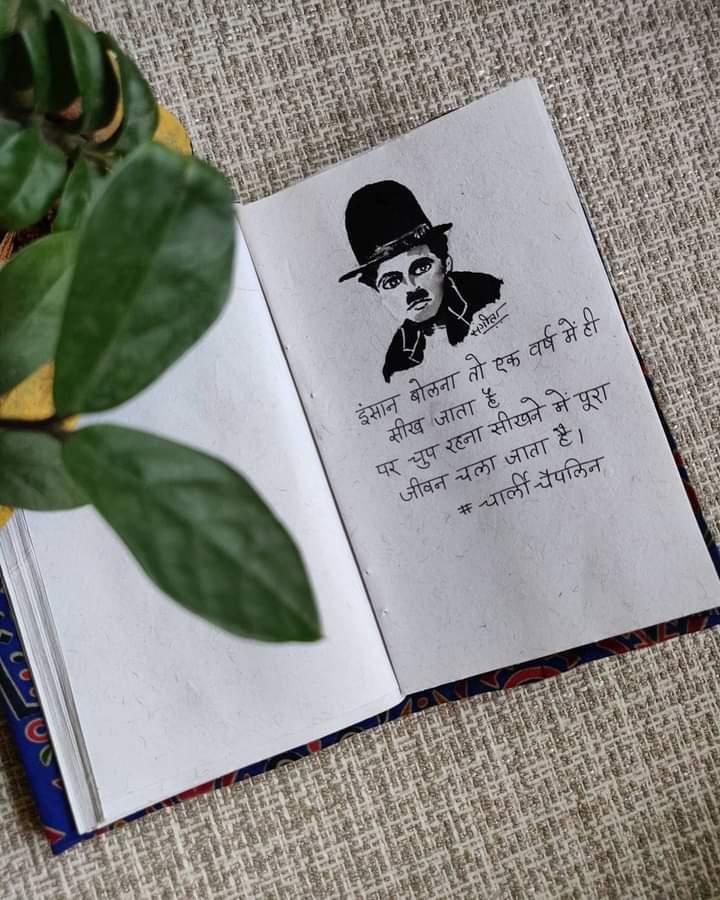 संगीता
इंसान बोलना तो एक वर्ष में ही
सीख जाता है
पर चुप रहना सीखने में पूरा
जीवन चला जाता है।
# चार्ली चैपलिन